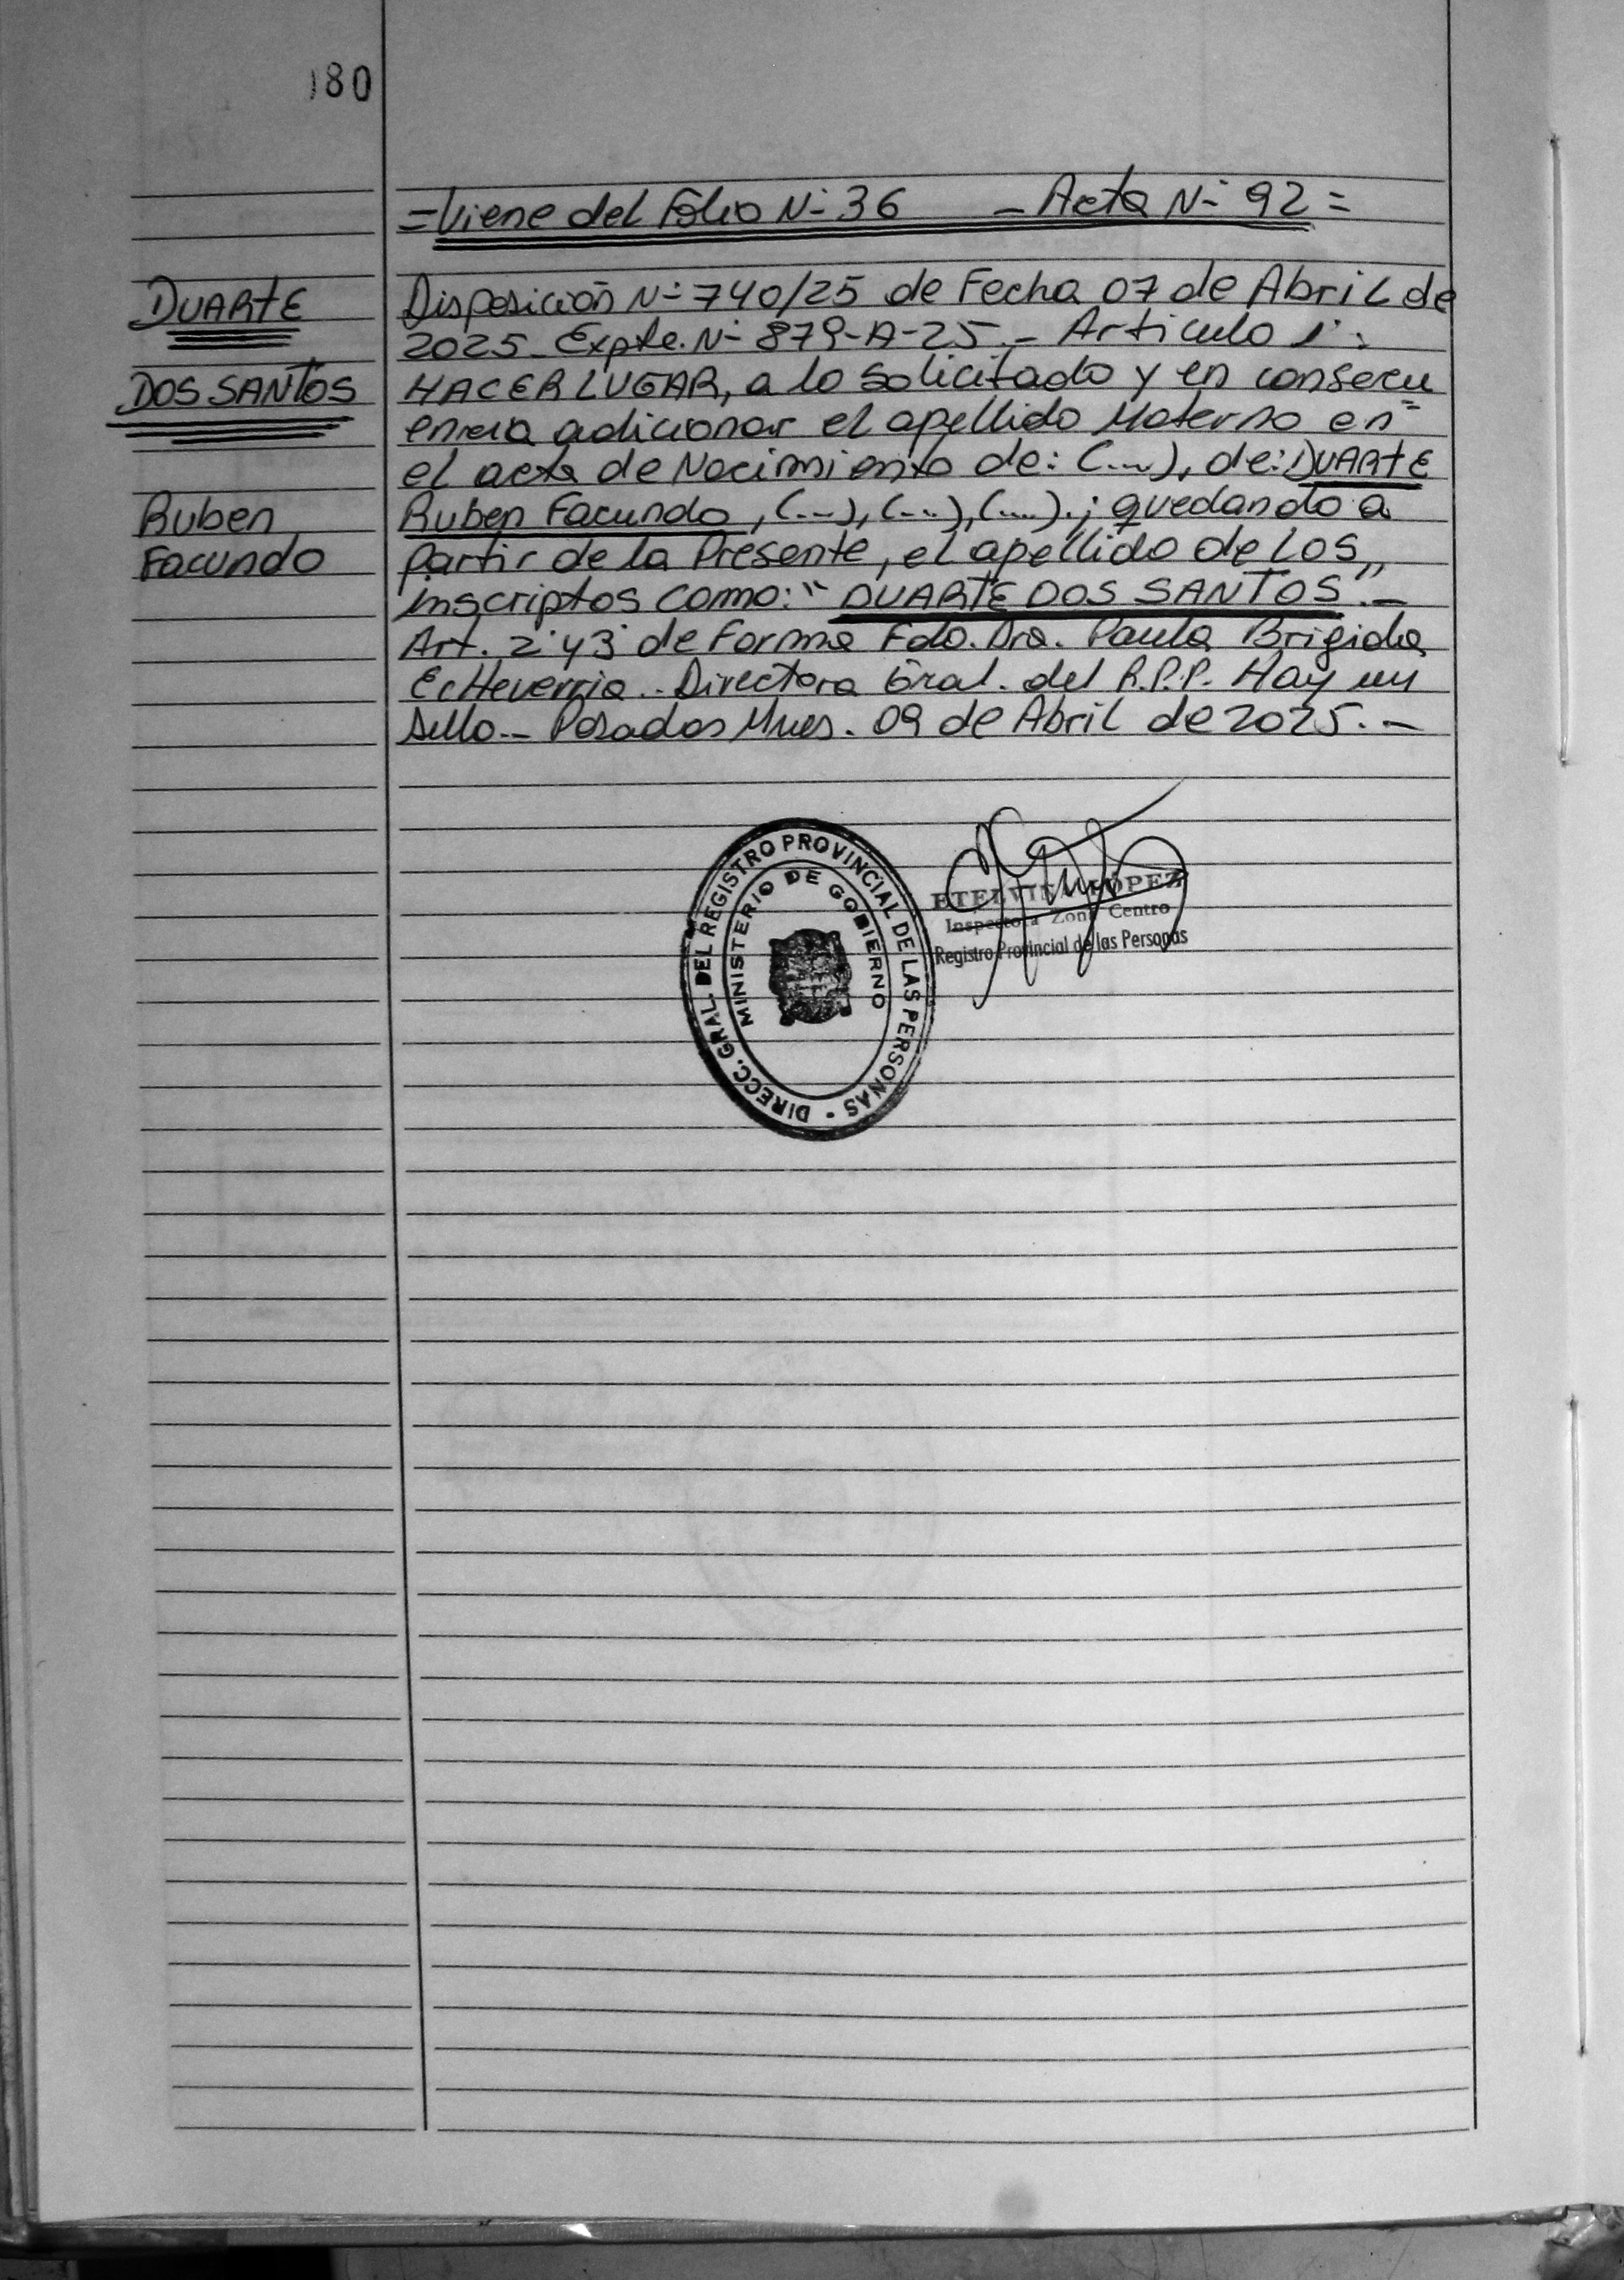 180
=Viene del Folio N- 36 - Acta N- 92=
DUARTE
DOS SANTOS
Ruben
Facundo
Disposición N- 740/25 de Fecha 07 de Abril de
2025_ Expte. N- 879-A-25.- Articulo 1°:
HACER LUGAR, a lo solicitado y en consecu
encia adicionar el apellido Materno en=
el acta de Nacimiento de: (...), de: DUARTE
Ruben Facundo, (...), (...), (....).; quedando a
partir de la Presente, el apellido de los
inscriptos como: "DUARTE DOS SANTOS".-
Art. 2° y 3° de Forma Fdo. Dra. Paula Brigida
EcHeverria.. Directora Gral. del R.P.P. Hay un
sello.- Posadas Mnes. 09 de Abril de 2025.-
DIRECC. GRAL. DEL REGISTRO PROVINCIAL DE LAS PERSONAS -
MINISTERIO DE GOBIERNO
ETELVINA LÓPEZ
Inspectora Zona Centro
Registro Provincial de las Personas